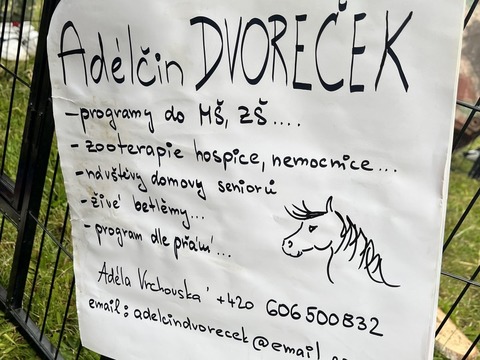 Adélčin DVOREČEK
- programy do MŠ, ZŠ....
- zooterapie hospice, nemocnice...
- návštěvy domovy seniorů
- živé betlémy...
- program dle přání...
Adéla Vrchovská +420 606500832
email: adelcindvorecek@email